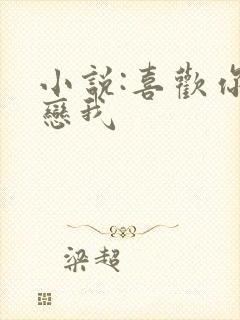 小說:喜歡你
戀我
梁超